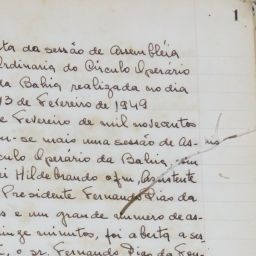 1
ta da sessão de Assembléia
rdinaria do Circulo Operário
da Bahia realizada no dia
13 de Fevereiro de 1949
e Fevereiro de mil novecentos
ou-se mais uma sessão de As-
culo Operário da Bahia, em
ei Hildebrando ofm, Assistente
Presidente Fernando Dias da
s e um grande numero de as-
inze minutos, foi aberta a ses-
o sr. Fernando Dias da